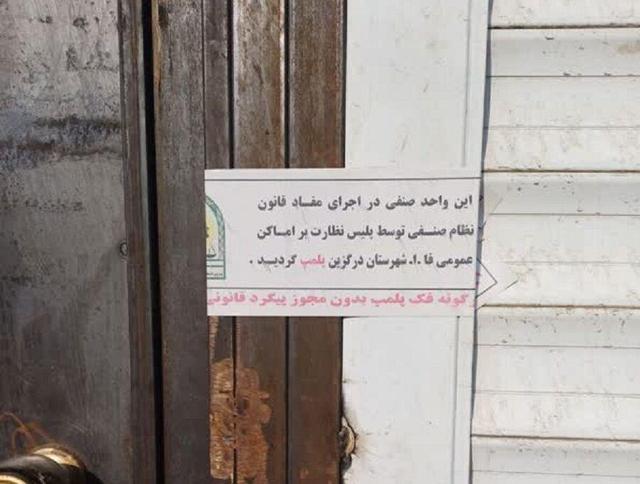 این واحد صنفی در اجرای مفاد قانون
نظام صنفی توسط پلیس نظارت بر اماکن
عمومی فا .ا. شهرستان درگزین پلمپ گردید .
رگونه فک پلمپ بدون مجوز پیگرد قانونی